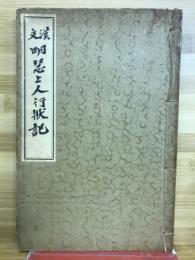 漢文 明恵上人行状記